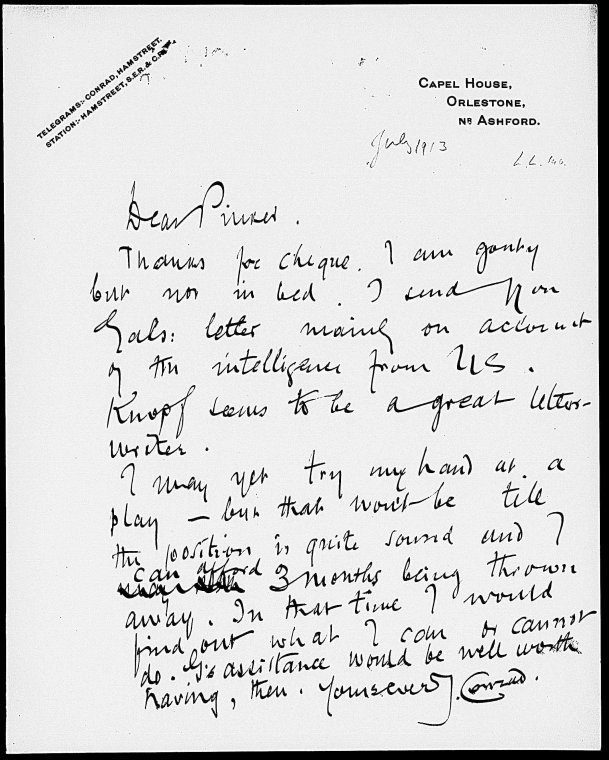 TELEGRAMS:- CONRAD, HAMSTREET.
STATION:- HAMSTREET, S.E.R. & C.
CAPEL HOUSE,
ORLESTONE,
NR ASHFORD.
July 1913
Dear Pinker.
Thanks for cheque. I am gouty
but not in bed. I send you
Gals: letter mainly on account
of the intelligence from US.
Knopf seems to be a great letter-
writer.
I may yet try my hand at a
play – but that won't be till
the position is quite sound and I
can afford 3 months being thrown
away. In that time I would
find out what I can or cannot
do. G's assistance would be well worth
having, then. Yours ever J. Conrad.